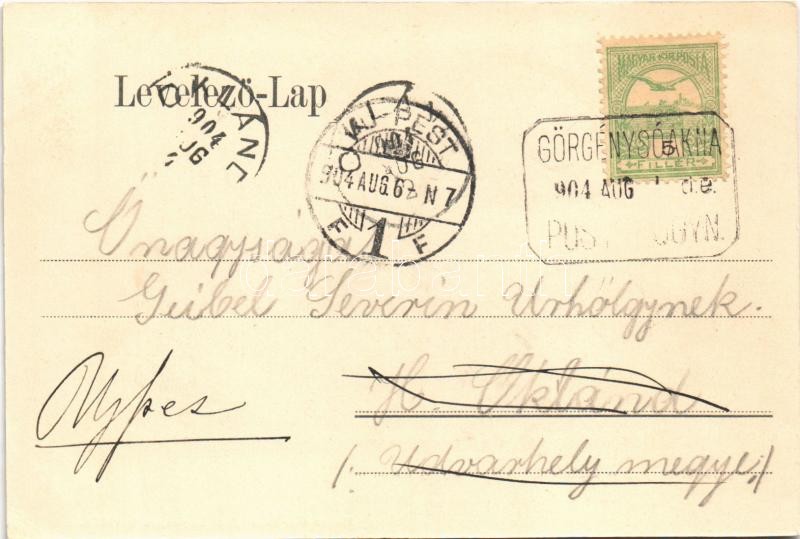 Levelező-Lap
OKLÁND
904
AUG
ÚJPEST
904 AUG. 6 N 7
1
F F
MAGYAR KIR. POSTA
5
FILLÉR
GÖRGÉNYSÓAKNA
904 AUG de.
POST ÜGYN.
Őnagysága
Geibel Severin Úrhölgynek.
H. Okland
Ujpest
(Udvarhely megye)